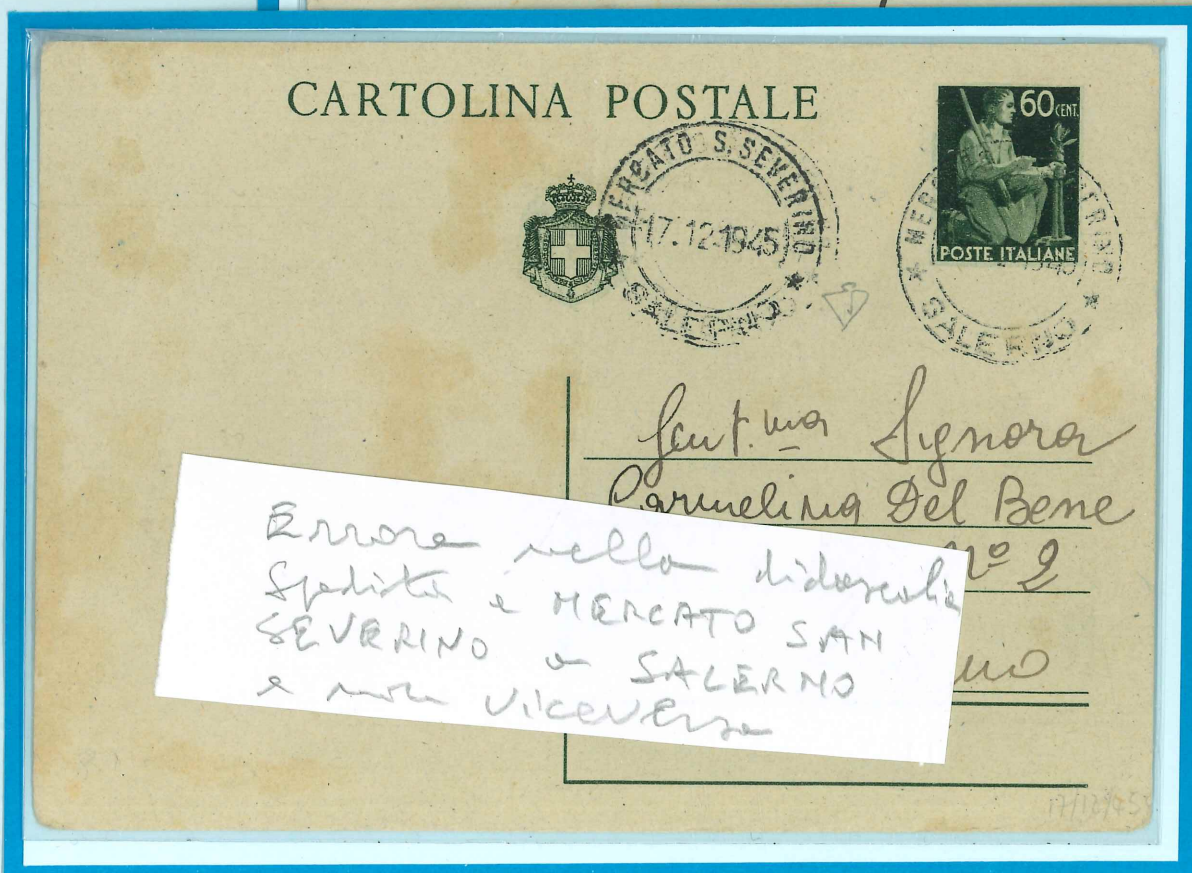 CARTOLINA POSTALE
60 CENT.
POSTE ITALIANE
MERCATO S. SEVERINO
17.12.1945
* SALERNO *
* SALERNO *
Gent.ma Signora
Carmelina Del Bene
Nº 2
Errore nella didascalia
Spedita a MERCATO SAN
SEVERINO a SALERNO
e non viceversa